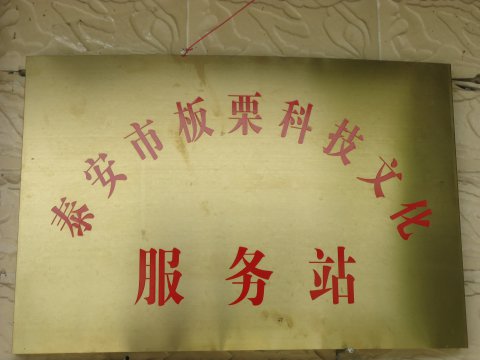 泰安市板栗科技文化
服务站